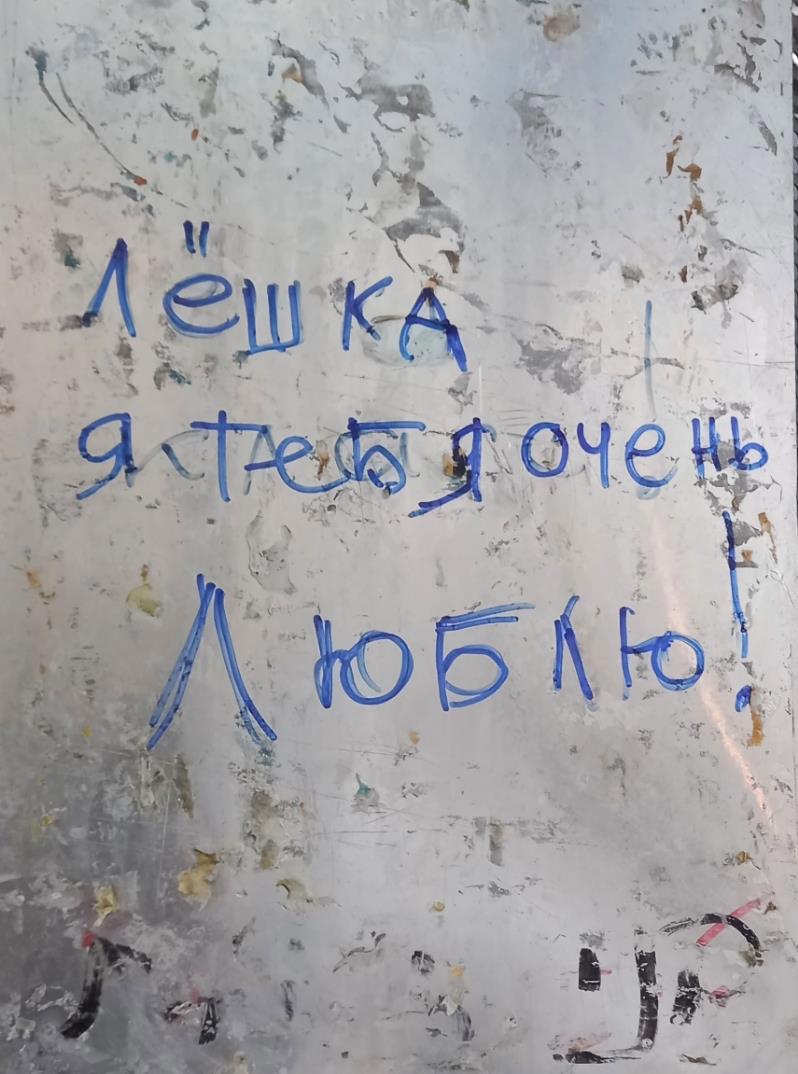 Лёшка
я тебя очень
Люблю!